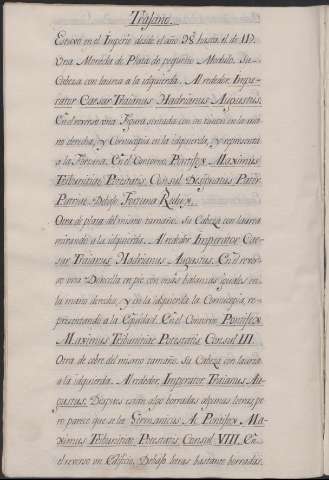 Trajano.
Estuvo en el Imperio desde el año 98 hasta el de 117.
Una Moneda de Plata de pequeño Modulo. Su
Cabeza con laurea a la izquierda. Alrededor Impe-
rator Caesar Traianus Hadrianus Augustus.
En el reverso una Figura sentada con un timon en la ma-
no derecha, y Cornucopia en la izquierda, y representa
a la Fortuna. En el Contorno Pontifex Maximus
Tribunitiae Potestatis, Consul Designatus Pater
Patriae. Debajo: Fortuna Redux.
Otra de plata del mismo tamaño. Su Cabeza con laurea
mirando a la izquierda. Alrededor Imperator Cae-
sar Traianus Hadrianus Augustus. En el rever-
so una Doncella en pie con unas balanzas iguales en
la mano derecha, y en la izquierda la Cornucopia, re-
presentando a la Equidad. En el Contorno Pontifex
Maximus Tribunitiae Potestatis, Consul III.
Otra de cobre del mismo tamaño. Su Cabeza con laurea
a la izquierda. Alrededor Imperator Traianus Au-
gustus. Despues estan algo borradas algunas letras, pe-
ro parece que se lea Germanicus A. Pontifex Ma-
ximus Tribunitiae Potestatis, Consul VIII. En
el reverso un Edificio, Debajo letras bastante borradas.